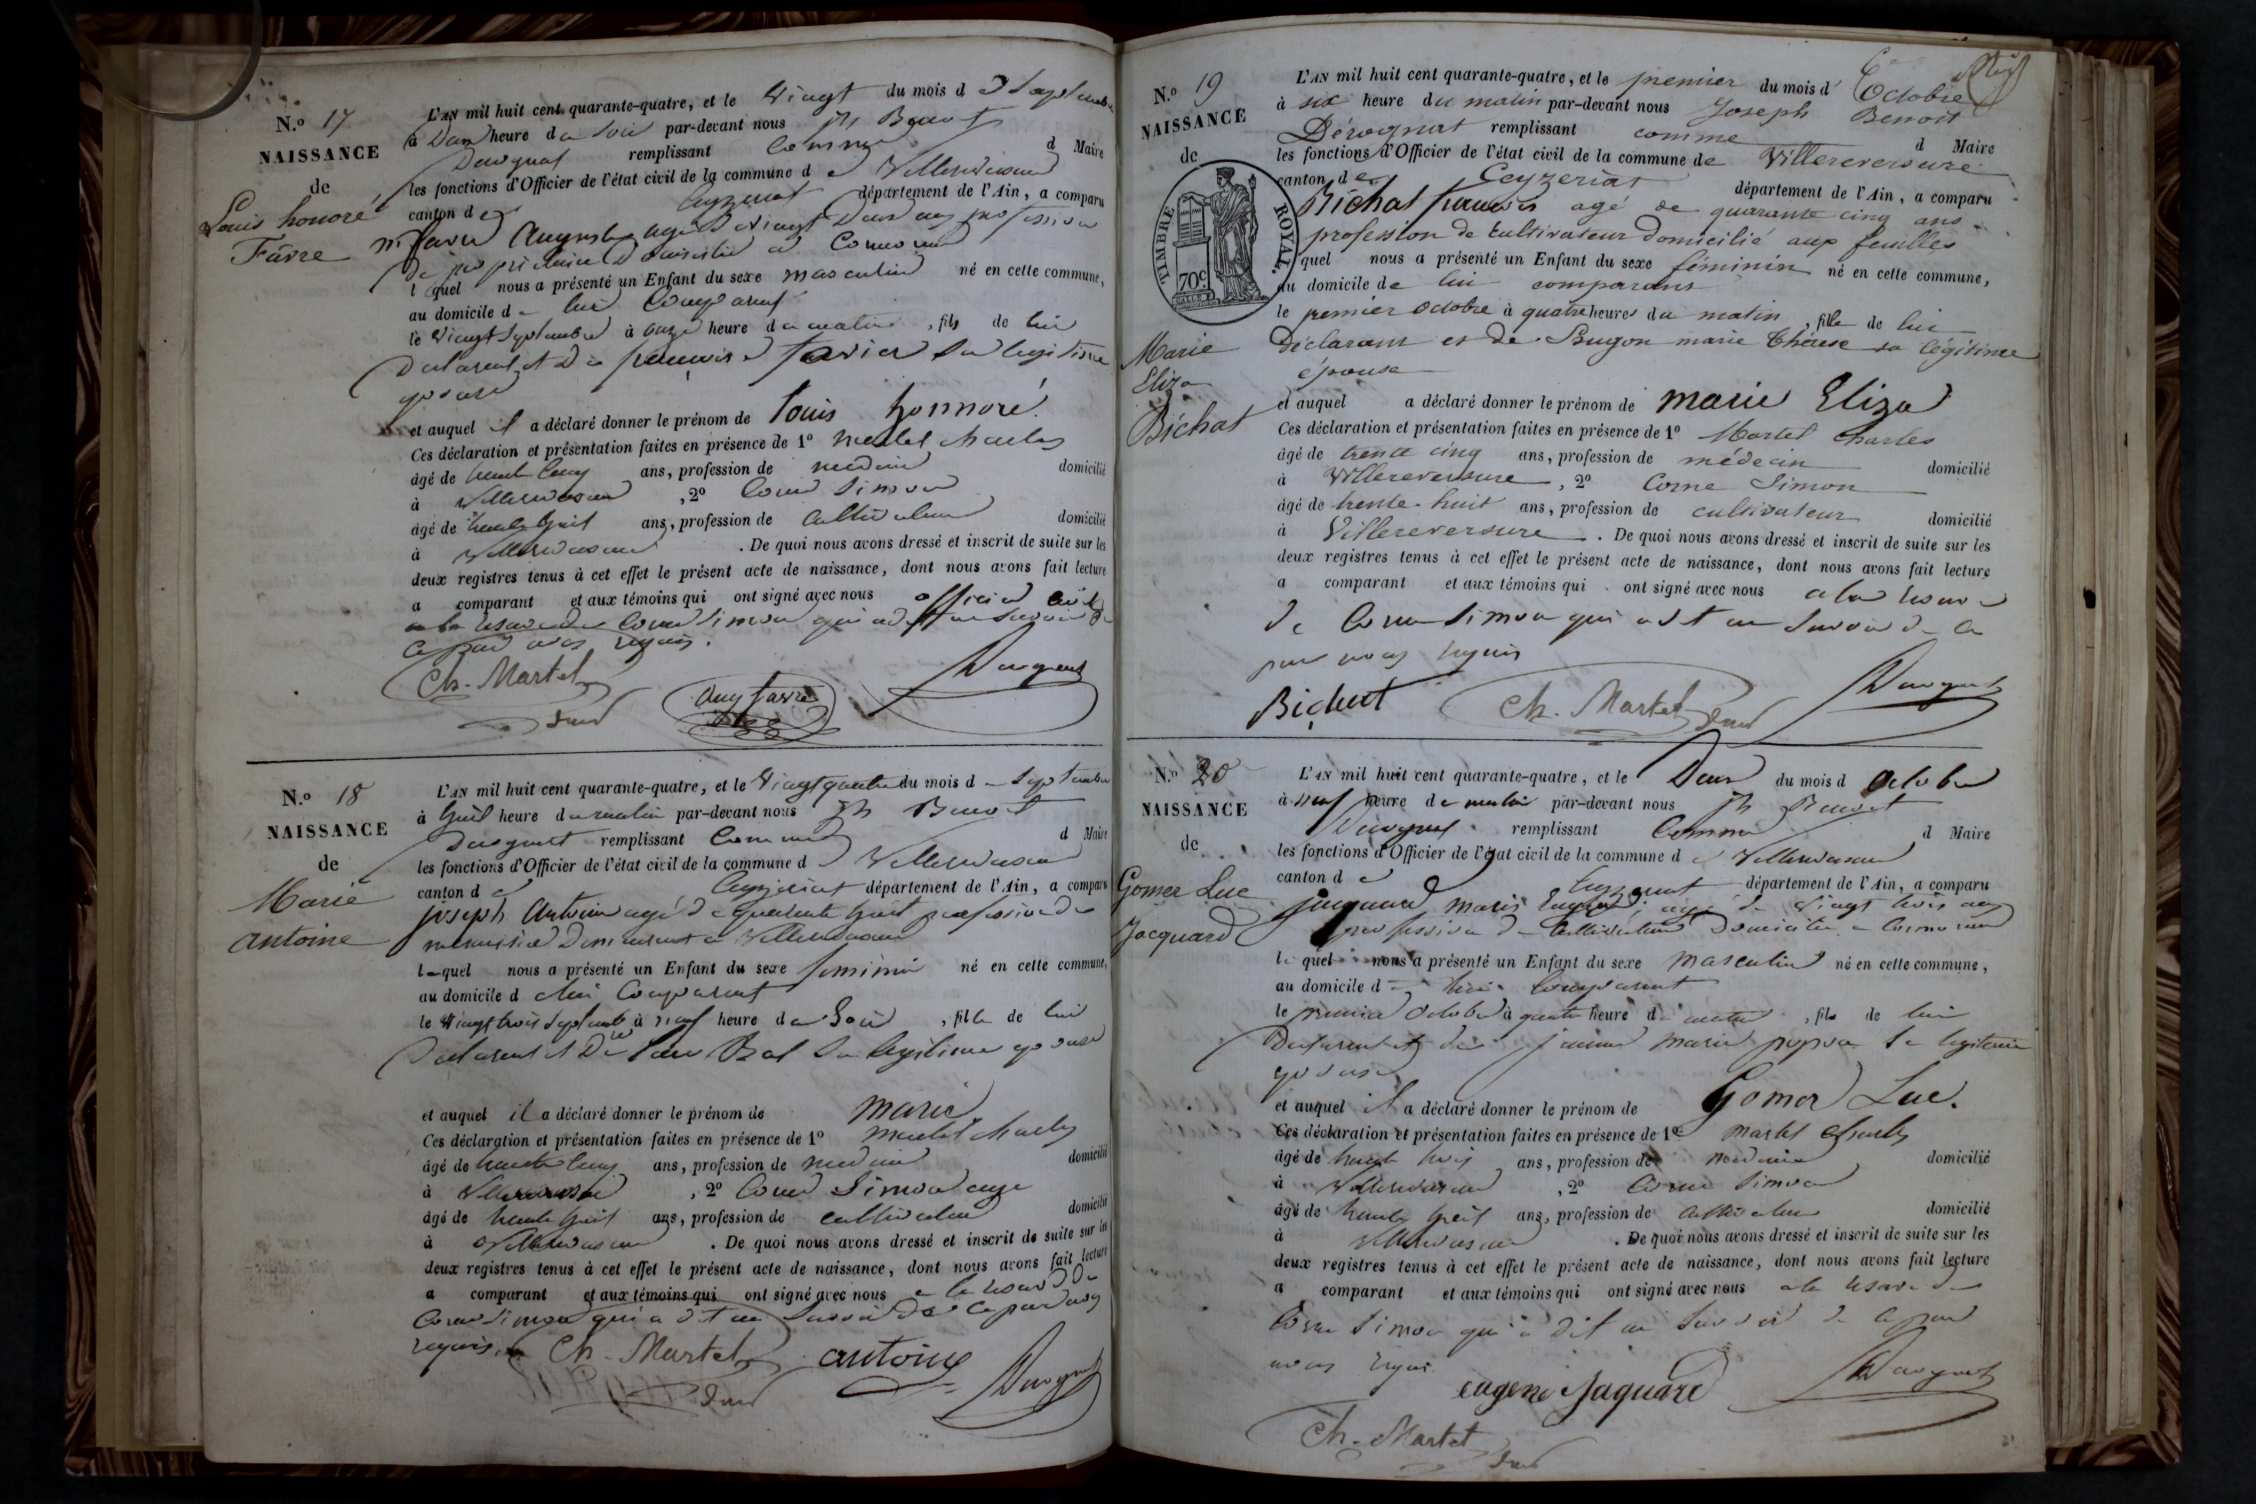 N.º 17
NAISSANCE
de
Louis honoré
Favre
L'AN mil huit cent quarante-quatre, et le Vingt du mois d
à Deux heure du Soir par-devant nous Jh Benoit
remplissant Comme d Maire
les fonctions d'Officier de l'état civil de la commune de
canton de Ceyzeriat département de l'Ain, a comparu
mr favre Auguste agé de vingt Deux ans profession
De propriétaire Domicilié a
lequel nous a présenté un Enfant du sexe masculin né en cette commune,
au domicile de lui Comparant
le Vingt Septembre à onze heure du matin, fils de lui
Declarant et De françoise favier Sa legitime
epouse
et auquel il a déclaré donner le prénom de Louis honnoré
Ces déclaration et présentation faites en présence de 1º Martel charles
âgé de trente Cinq ans, profession de medecin domicilié
à , 2º Corne Simon
âgé de trente huit ans, profession de Cultivateur domicilié
à . De quoi nous avons dressé et inscrit de suite sur les
deux registres tenus à cet effet le présent acte de naissance, dont nous avons fait lecture
a comparant et aux témoins qui ont signé avec nous officier civil
Corne Simon qui a dit ne Savoir De
Ce par nous requis.
Ch. Martel
Aug favre
N.º 18
NAISSANCE
de
Marie
antoine
L'AN mil huit cent quarante-quatre, et le Vingt quatre du mois de Septembre
à huit heure du matin par-devant nous Jh Benoit
remplissant Comme d Maire
les fonctions d'Officier de l'état civil de la commune d
canton de Ceyzeriat département de l'Ain, a comparu
joseph Antoine agé De quarante huit profession de
menuisier Demeurant a
lequel nous a présenté un Enfant du sexe feminin né en cette commune,
au domicile de lui Comparant
le Vingt trois Septembre à neuf heure du Soir, fille de lui
Declarant et De Sa legitime epouse
et auquel il a déclaré donner le prénom de marie
Ces déclaration et présentation faites en présence de 1º Martel charles
âgé de trente Cinq ans, profession de medecin domicilié
à , 2º Corne Simon
âgé de trente huit ans, profession de cultivateur domicilié
à . De quoi nous avons dressé et inscrit de suite sur les
deux registres tenus à cet effet le présent acte de naissance, dont nous avons fait lecture
a comparant et aux témoins qui ont signé avec nous
Corne Simon qui a dit ne Savoir De Ce par nous
requis.
Ch. Martel antoine
N.º 19
NAISSANCE
de
TIMBRE ROYAL.
70c
Marie
Eliza
Bichat
L'AN mil huit cent quarante-quatre, et le premier du mois d'Octobre
à six heure du matin par-devant nous Joseph Benoit
remplissant comme d Maire
les fonctions d'Officier de l'état civil de la commune de Villereversure
canton de Ceyzeriat département de l'Ain, a comparu
Bichat françois agé de quarante cinq ans
profession de cultivateur domicilié aux feuilles
quel nous a présenté un Enfant du sexe féminin né en cette commune,
au domicile de lui comparans
le premier octobre à quatre heures du matin, fille de lui
déclarant et de Bugon marie thérèse sa légitime
épouse
et auquel a déclaré donner le prénom de marie Eliza
Ces déclaration et présentation faites en présence de 1º Martel charles
âgé de trente cinq ans, profession de médecin domicilié
à Villereversure, 2º Corne Simon
âgé de trente-huit ans, profession de cultivateur domicilié
à Villereversure. De quoi nous avons dressé et inscrit de suite sur les
deux registres tenus à cet effet le présent acte de naissance, dont nous avons fait lecture
a comparant et aux témoins qui ont signé avec nous
De Corne Simon qui a dit ne Savoir de Ce
par nous requis
Bichat Ch. Martel
N.º 20
NAISSANCE
de
Gomer Luc
Jacquard
L'AN mil huit cent quarante-quatre, et le Deux du mois d octobre
à neuf heure du matin par-devant nous Jh Benoit
remplissant Comme d Maire
les fonctions d'Officier de l'état civil de la commune de
canton de Ceyzeriat département de l'Ain, a comparu
jacquard marie Eugene agé de vingt trois ans
profession de Cultivateur Domicilié a
lequel nous a présenté un Enfant du sexe masculin né en cette commune,
au domicile de lui Comparant
le premier Octobre à quatre heure du matin, fils de lui
Declarant et de marie Sa legitime
epouse
et auquel il a déclaré donner le prénom de Gomer Luc.
Ces déclaration et présentation faites en présence de 1º Martel charles
âgé de trente ans, profession de medecin domicilié
à , 2º Corne Simon
âgé de trente huit ans, profession de cultivateur domicilié
à . De quoi nous avons dressé et inscrit de suite sur les
deux registres tenus à cet effet le présent acte de naissance, dont nous avons fait lecture
a comparant et aux témoins qui ont signé avec nous
Corne Simon qui a dit ne Savoir de Ce par
nous requis
eugene Jaquard
Ch. Martel